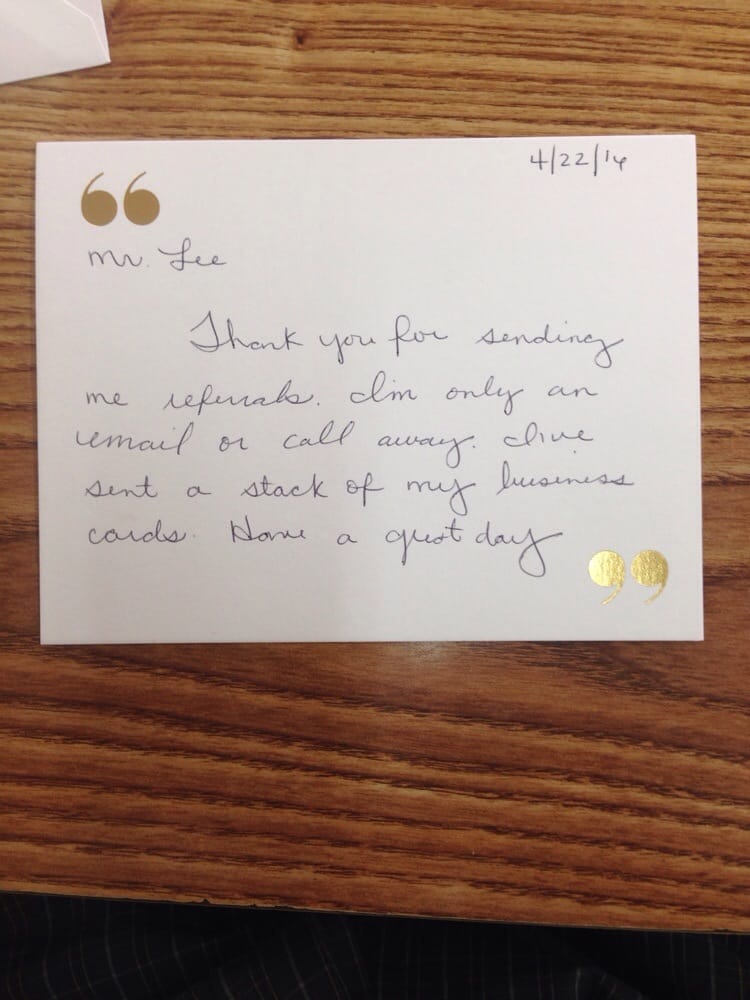 4/22/16
Mr. Lee
Thank you for sending
me referrals. I'm only an
email or call away. I've
sent a stack of my business
cards. Have a great day